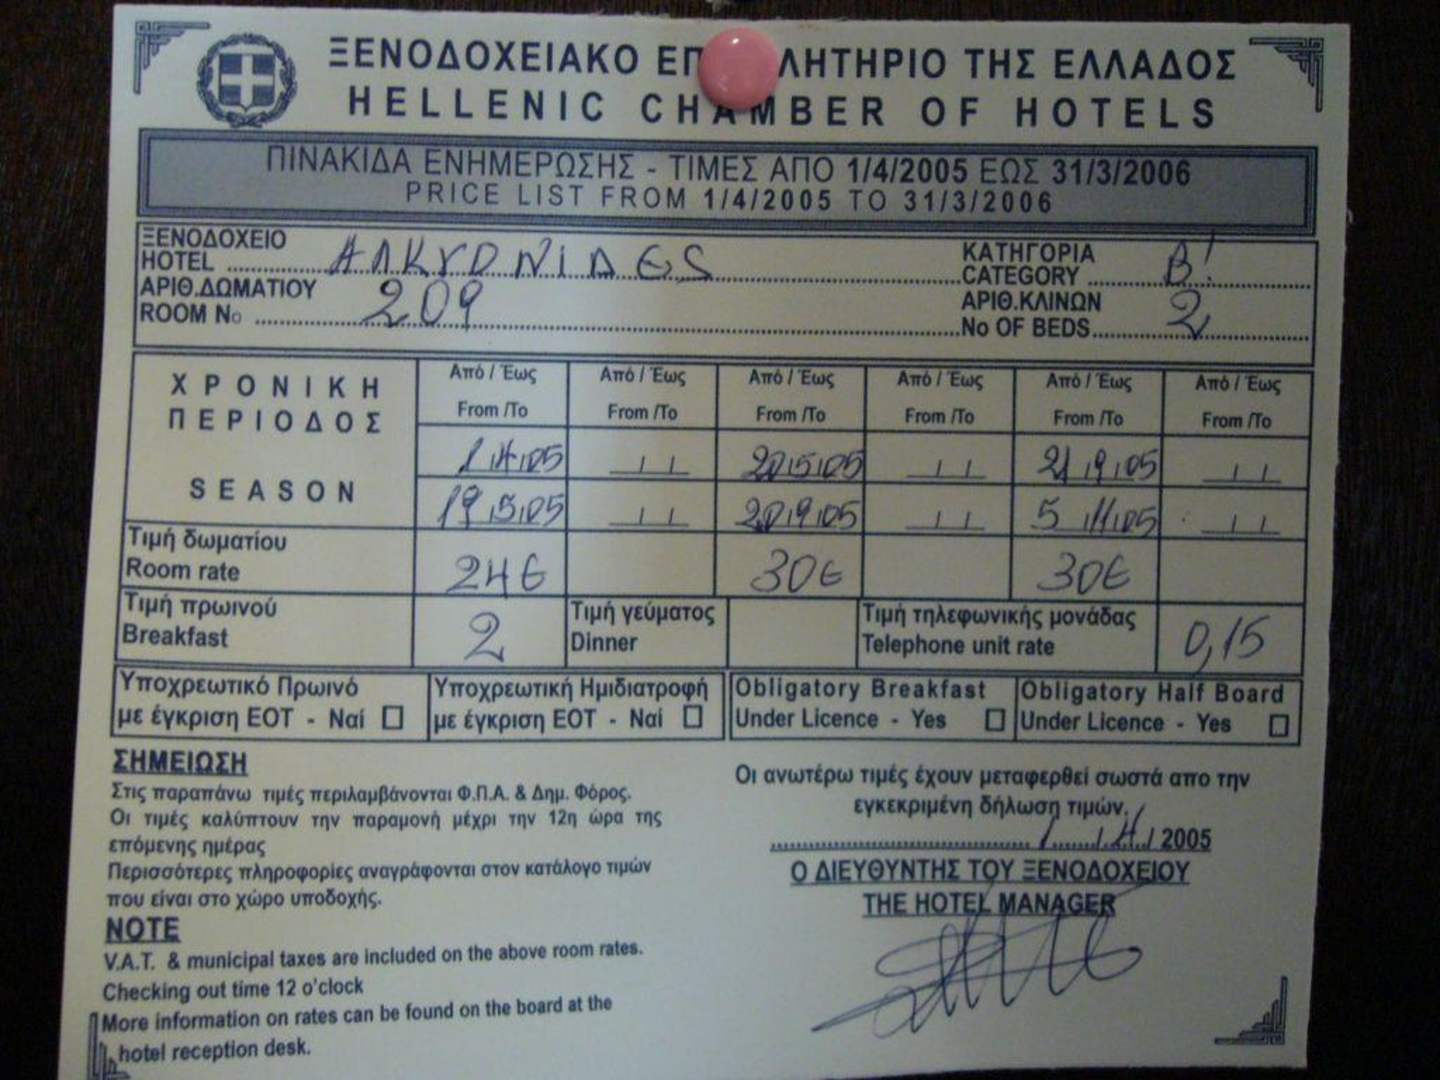 ΞΕΝΟΔΟΧΕΙΑΚΟ ΕΠ ΛΗΤΗΡΙΟ ΤΗΣ ΕΛΛΑΔΟΣ
HELLENIC CHAMBER OF HOTELS
ΠΙΝΑΚΙΔΑ ΕΝΗΜΕΡΩΣΗΣ - ΤΙΜΕΣ ΑΠΟ 1/4/2005 ΕΩΣ 31/3/2006
PRICE LIST FROM 1/4/2005 TO 31/3/2006
ΞΕΝΟΔΟΧΕΙΟ
HOTEL ΑΛΚΥΟΝΙΔΕS
ΚΑΤΗΓΟΡΙΑ
CATEGORY Β!
ΑΡΙΘ.ΔΩΜΑΤΙΟΥ
ROOM No 209
ΑΡΙΘ.ΚΛΙΝΩΝ
No OF BEDS 2
ΧΡΟΝΙΚΗ
ΠΕΡΙΟΔΟΣ
SEASON
Από / Έως Από / Έως Από / Έως Από / Έως Από / Έως Από / Έως
From /To From /To From /To From /To From /To From /To
1 4 05 20 5 05 21 9 05
19 5 05 20 9 05 5 11 05
Τιμή δωματίου
Room rate 24€ 30€ 30€
Τιμή πρωινού
Breakfast 2
Τιμή γεύματος
Dinner
Τιμή τηλεφωνικής μονάδας
Telephone unit rate 0,15
Υποχρεωτικό Πρωινό
με έγκριση ΕΟΤ - Ναί
Υποχρεωτική Ημιδιατροφή
με έγκριση ΕΟΤ - Ναί
Obligatory Breakfast
Under Licence - Yes
Obligatory Half Board
Under Licence - Yes
ΣΗΜΕΙΩΣΗ
Στις παραπάνω τιμές περιλαμβάνονται Φ.Π.Α. & Δημ. Φόρος.
Οι τιμές καλύπτουν την παραμονή μέχρι την 12η ώρα της
επόμενης ημέρας
Περισσότερες πληροφορίες αναγράφονται στον κατάλογο τιμών
που είναι στο χώρο υποδοχής.
NOTE
V.A.T. & municipal taxes are included on the above room rates.
Checking out time 12 o'clock
More information on rates can be found on the board at the
hotel reception desk.
Οι ανωτέρω τιμές έχουν μεταφερθεί σωστά απο την
εγκεκριμένη δήλωση τιμών.
1 / 4 / 2005
Ο ΔΙΕΥΘΥΝΤΗΣ ΤΟΥ ΞΕΝΟΔΟΧΕΙΟΥ
THE HOTEL MANAGER